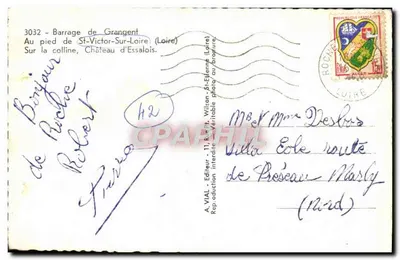 3032 - Barrage de Grangent
Au pied de St-Victor-Sur-Loire (Loire)
Sur la colline, Château d'Essalois.
Bonjour
de Roche
Robert
Pierre
42
A. VIAL - Editeur - 11, Rue Wilson - St-Etienne (Loire)
Reproduction interdite - Véritable photo au bromure
CPARAMA
ROCHE
LOIRE
M et Mme Desbois
Villa Eole route
de Préseau Marly
(Nord)